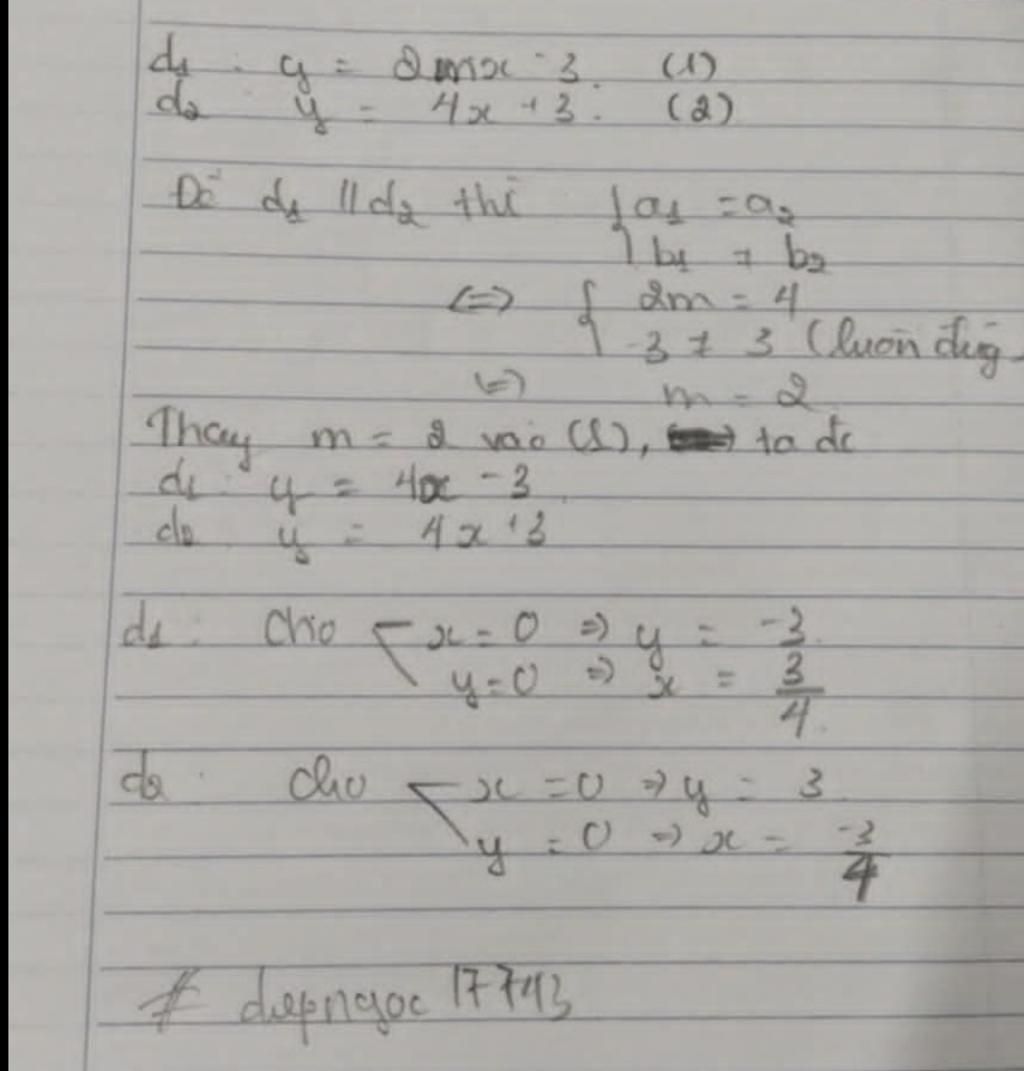 d₁ : y = 2mx - 3. (1)
d₂ : y = 4x + 3. (2)
Để d₁ // d₂ thì { a₁ = a₂
b₁ ≠ b₂
<=> { 2m = 4
-3 ≠ 3 (luôn đúng
<=> m = 2
Thay m = 2 vào (1), ta đc
d₁ : y = 4x - 3
d₂ : y = 4x + 3
d₁ : Cho x = 0 => y = -3.
y = 0 => x = 3/4.
d₂ : Cho x = 0 => y = 3
y = 0 => x = -3/4
# diepngoc 17743